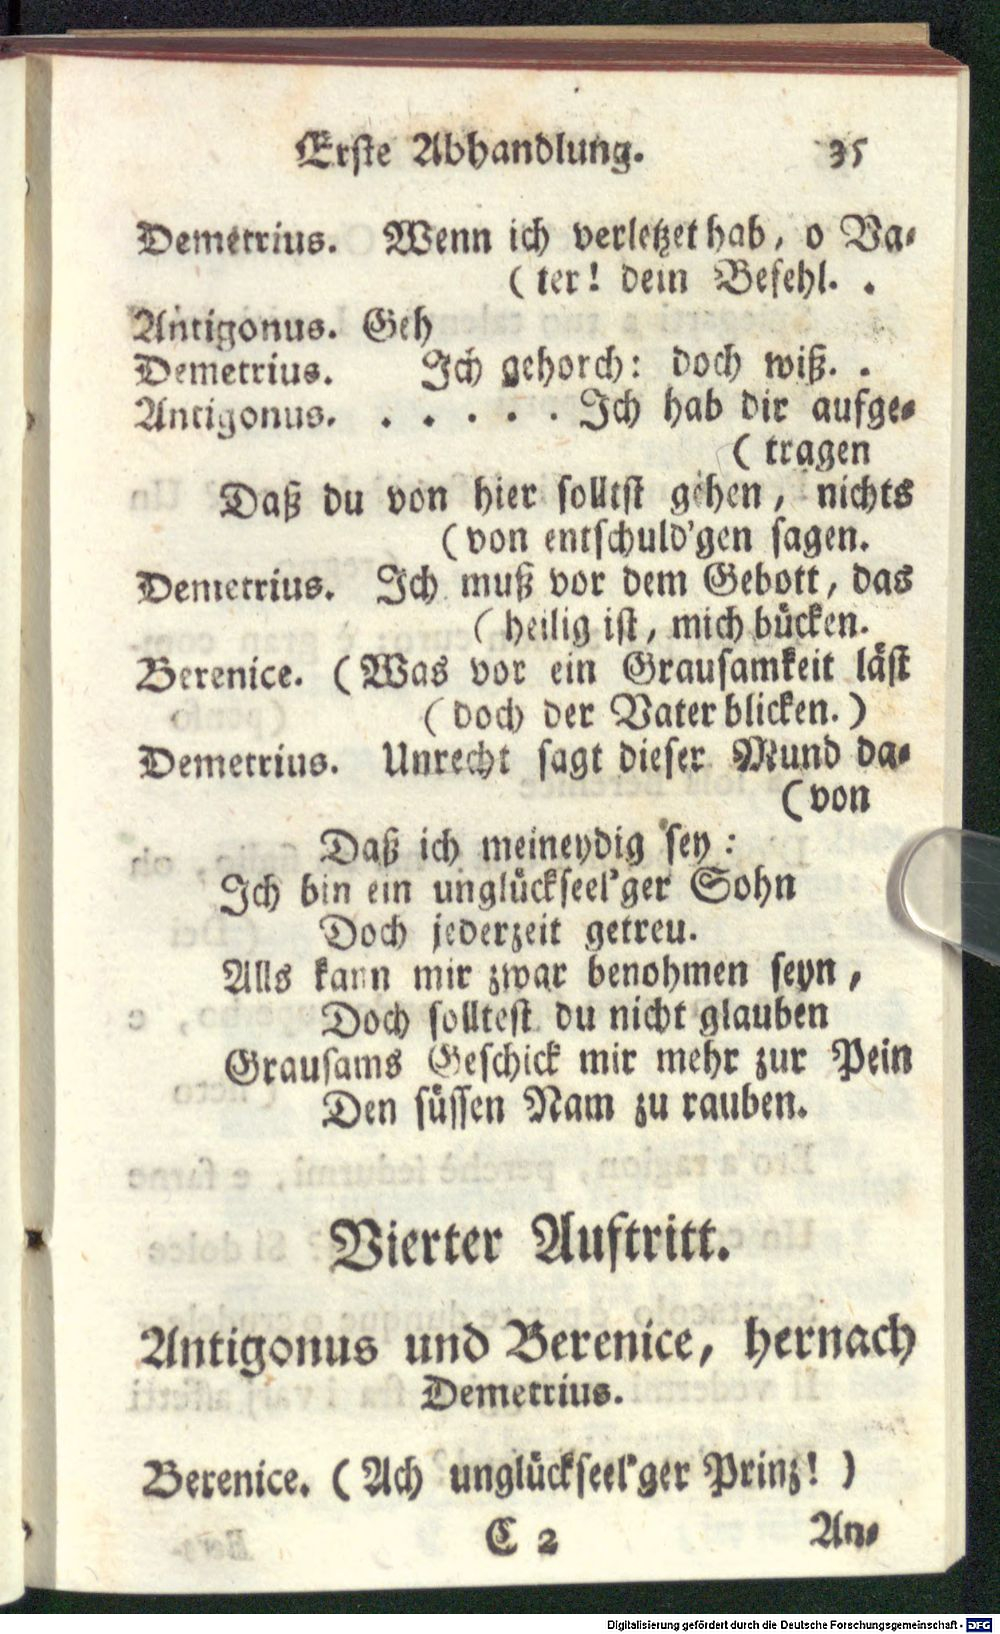 Erste Abhandlung. 35
Demetrius. Wenn ich verletzet hab, o Va-
(ter! dein Befehl. .
Antigonus. Geh
Demetrius. Ich gehorch: doch wiß. .
Antigonus. . . . . . Ich hab dir aufge-
(tragen
Daß du von hier solltst gehen, nichts
(von entschuld'gen sagen.
Demetrius. Ich muß vor dem Gebott, das
(heilig ist, mich bücken.
Berenice. (Was vor ein Grausamkeit läst
(doch der Vater blicken.)
Demetrius. Unrecht sagt dieser Mund da-
(von
Daß ich meineydig sey:
Ich bin ein unglückseel'ger Sohn
Doch jederzeit getreu.
Alls kann mir zwar benohmen seyn,
Doch solltest du nicht glauben
Grausams Geschick mir mehr zur Pein
Den süssen Nam zu rauben.
Vierter Auftritt.
Antigonus und Berenice, hernach
Demetrius.
Berenice. (Ach unglückseel'ger Prinz!)
C 2 An-
Digitalisierung gefördert durch die Deutsche Forschungsgemeinschaft - DFG